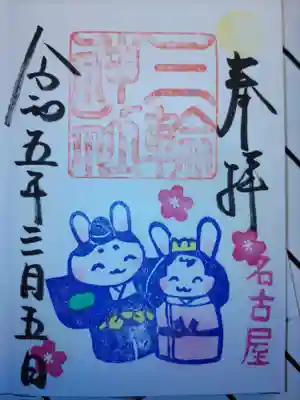 奉拝
三輪
神社
名古屋
令和五年三月五日